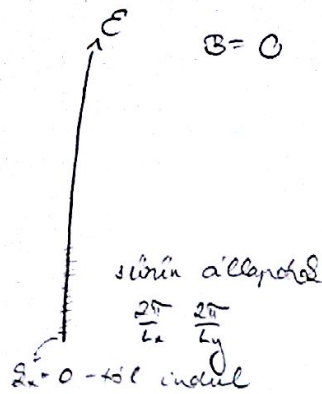 ε
B = 0
sűrűn állapotok
2π/Lx 2π/Ly
kx = 0 -tól indul